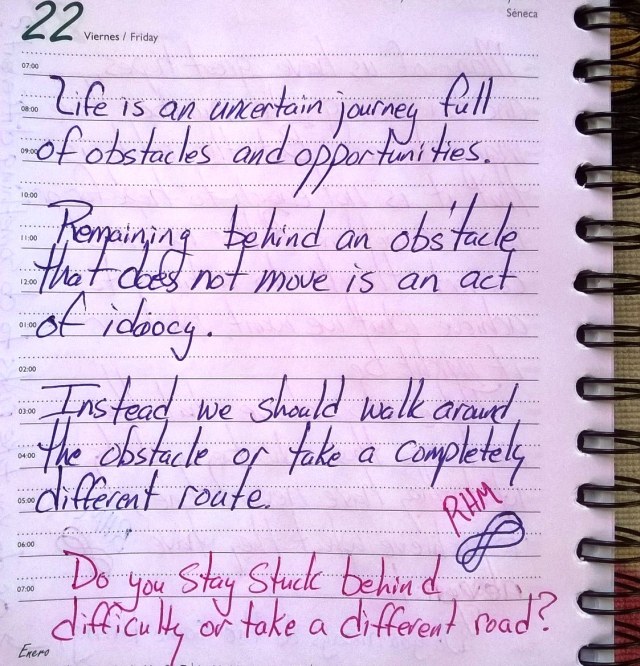 Séneca
22 Viernes / Friday
07:00
08:00 Life is an uncertain journey full
09:00 of obstacles and opportunities.
10:00
11:00 Remaining behind an obstacle
12:00 that does not move is an act
01:00 of idiocy.
02:00
03:00 Instead we should walk around
04:00 the obstacle or take a completely
05:00 different route.
RHM
06:00
07:00 Do you stay stuck behind
difficulty or take a different road?
Enero